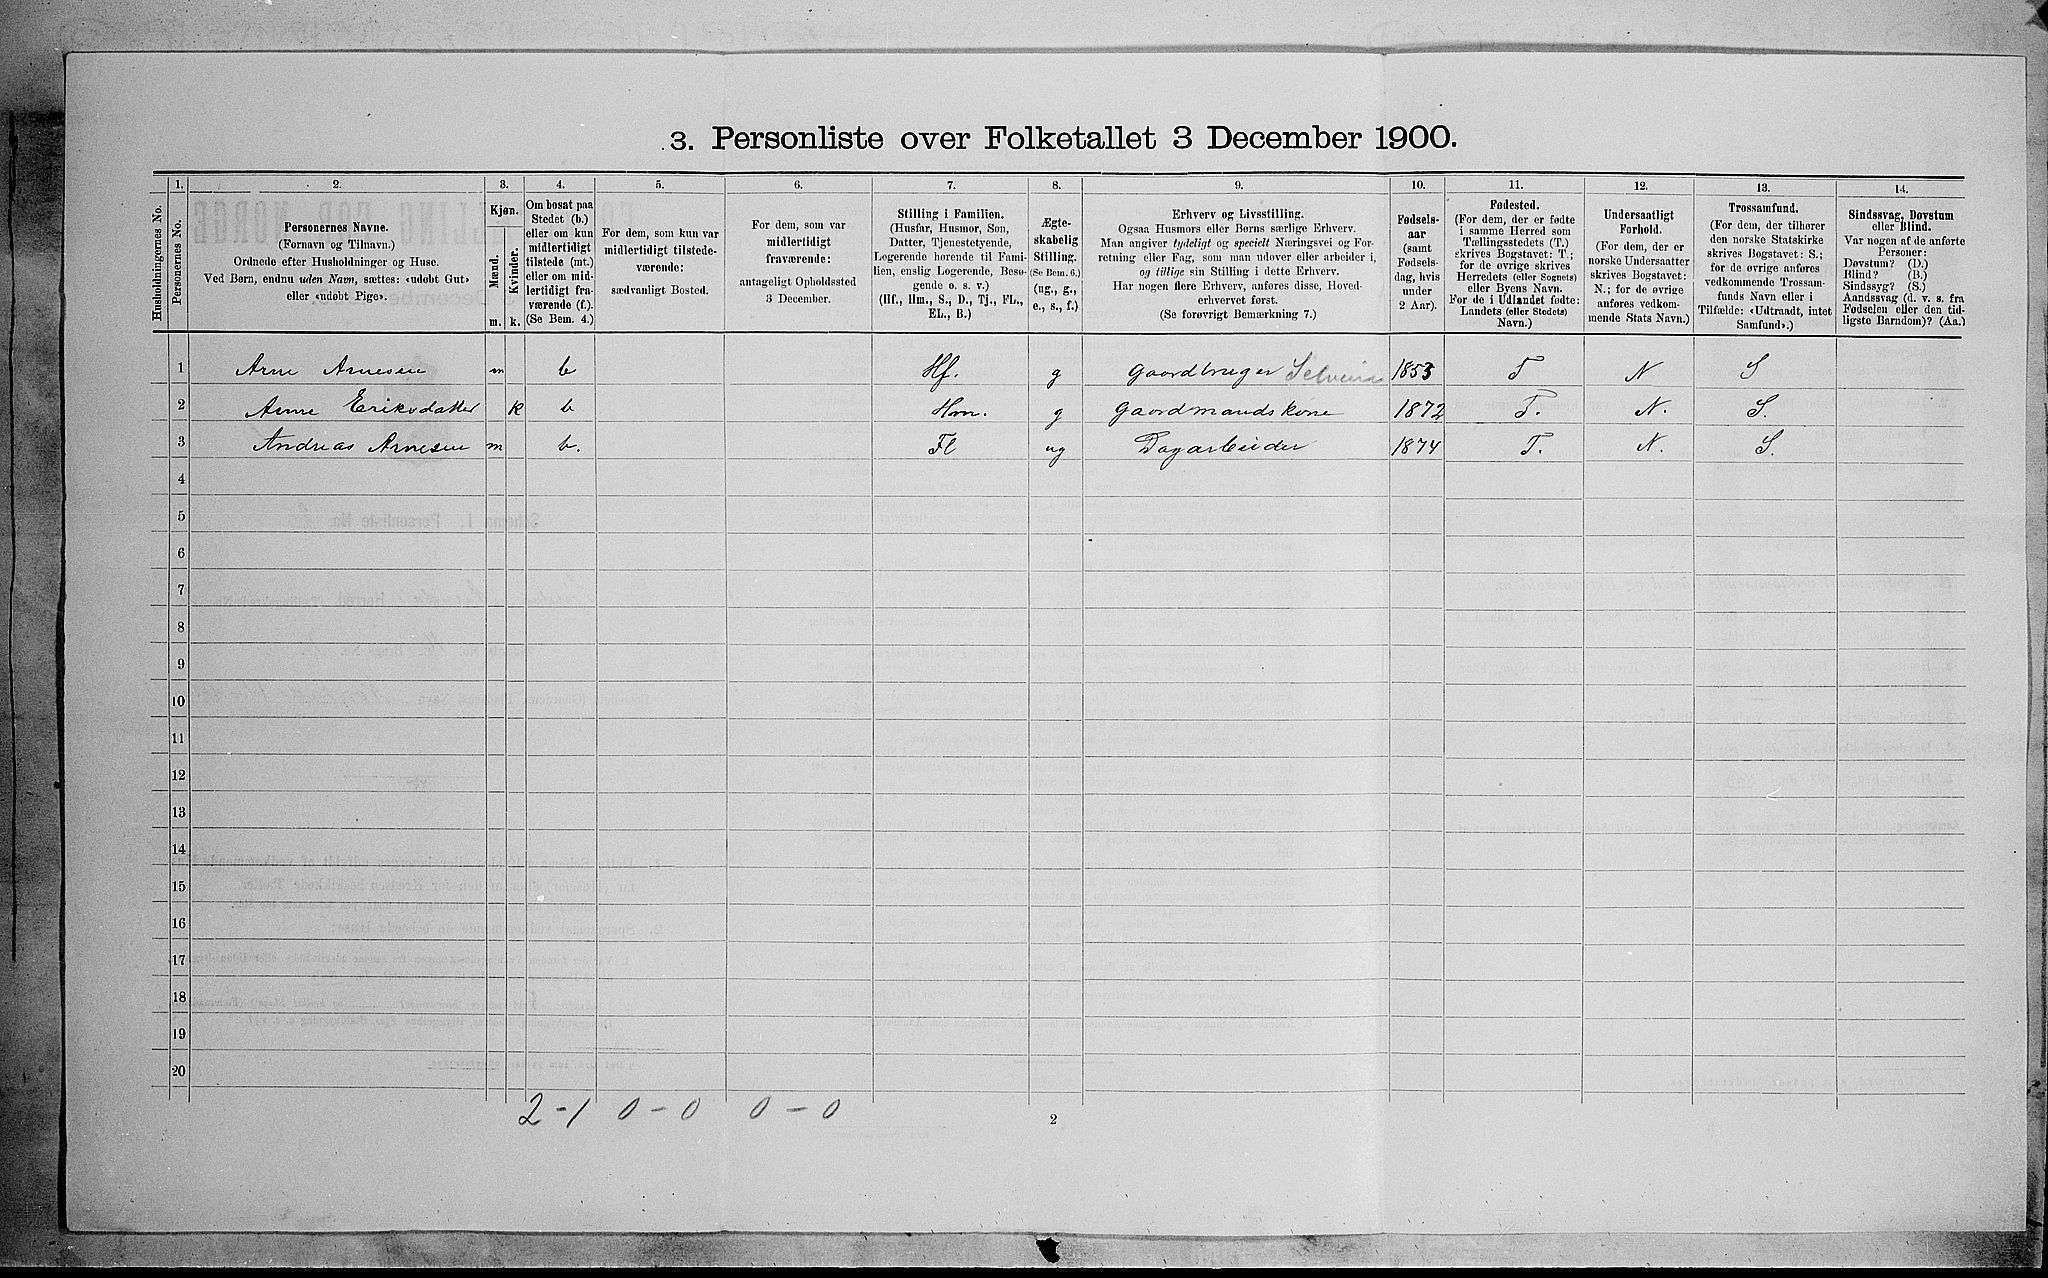 3. Personliste over Folketallet 3 December 1900.
Husholdningernes No.
1. Personernes No.
2. Personernes Navne. (Fornavn og Tilnavn.) Ordnede efter Husholdninger og Huse. Ved Børn, endnu uden Navn, sættes: «udøbt Gut» eller «udøbt Pige».
3. Kjøn. Mænd. m. Kvinder. k.
4. Om bosat paa Stedet (b.) eller om kun midlertidigt tilstede (mt.) eller om midlertidigt fraværende (f.). (Se Bem. 4.)
5. For dem, som kun var midlertidigt tilstedeværende: sædvanligt Bosted.
6. For dem, som var midlertidigt fraværende: antageligt Opholdssted 3 December.
7. Stilling i Familien. (Husfar, Husmor, Søn, Datter, Tjenestetyende, Logerende hørende til Familien, enslig Logerende, Besøgende o. s. v.) (Hf., Hm., S., D., Tj., FL., EL., B.)
8. Ægteskabelig Stilling. (Se Bem. 6.) (ug., g., e., s., f.)
9. Erhverv og Livsstilling. Ogsaa Husmors eller Børns særlige Erhverv. Man angiver tydeligt og specielt Næringsvei og Forretning eller Fag, som man udøver eller arbeider i, og tillige sin Stilling i dette Erhverv. Har nogen flere Erhverv, anføres disse, Hovederhvervet først. (Se forøvrigt Bemærkning 7.)
10. Fødselsaar (samt Fødselsdag, hvis under 2 Aar).
11. Fødested. (For dem, der er fødte i samme Herred som Tællingsstedets (T.) skrives Bogstavet: T.; for de øvrige skrives Herredets (eller Sognets) eller Byens Navn. For de i Udlandet fødte: Landets (eller Stedets) Navn.)
12. Undersaatligt Forhold. (For dem, der er norske Undersaatter skrives Bogstavet: N.; for de øvrige anføres vedkommende Stats Navn.)
13. Trossamfund. (For dem, der tilhører den norske Statskirke skrives Bogstavet: S.; for de øvrige anføres vedkommende Trossamfunds Navn eller i Tilfælde: «Udtraadt, intet Samfund».)
14. Sindssvag, Døvstum eller Blind. Var nogen af de anførte Personer: Døvstum? (D.) Blind? (B.) Sindssyg? (S.) Aandssvag (d. v. s. fra Fødselen eller den tidligste Barndom)? (Aa.)
1 Arne Arnesen m b Hf. g Gaardbruger Selveier 1853 T N S
2 Anne Eriksdatter k b Hm. g Gaardmandskone 1872 T. N. S.
3 Andreas Arnesen m b. Fl ug Dagarbeider 1874 T. N. S.
4
5
6
7
8
9
10
11
12
13
14
15
16
17
18
19
20
2-1 0-0 0-0
2